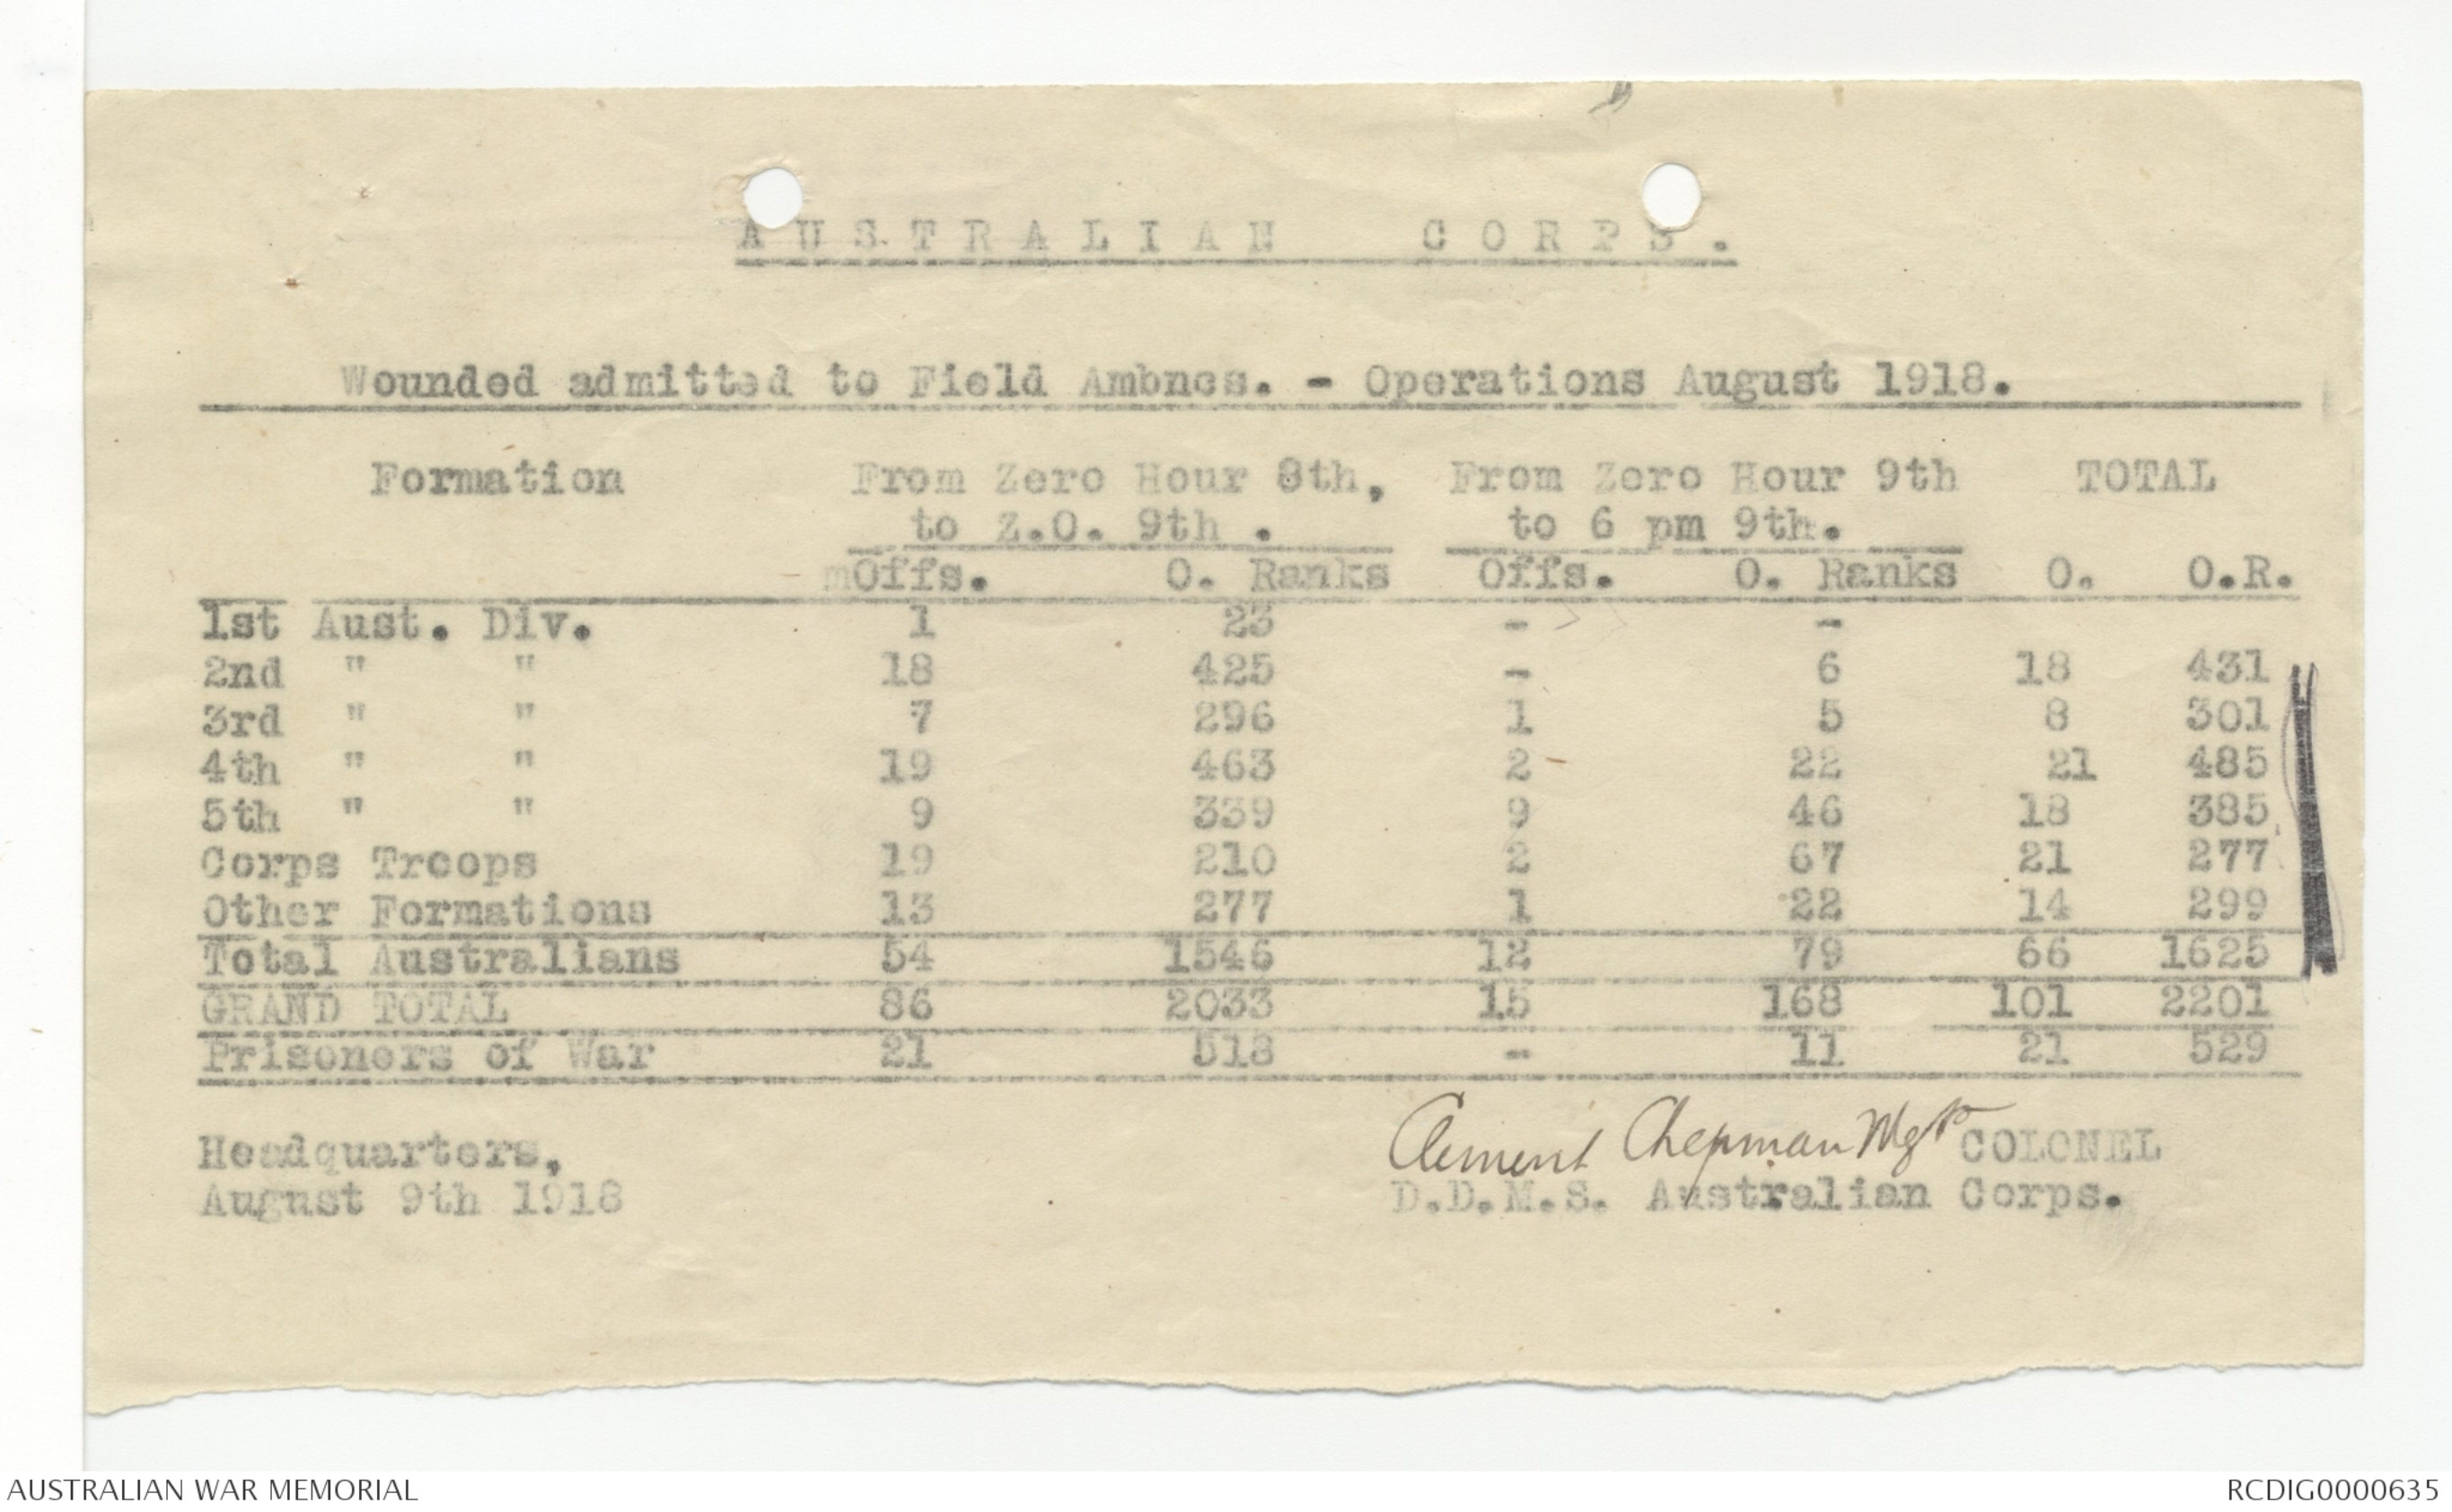 AUSTRALIAN CORPS.
Wounded admitted to Field Ambnces. - Operations August 1918.
Formation From Zero Hour 8th, From Zero Hour 9th TOTAL
to Z.O. 9th . to 6 pm 9th.
mOffs. O. Ranks Offs. O. Ranks O. O.R.
1st Aust. Div. 1 23 - -
2nd " " 18 425 - 6 18 431
3rd " " 7 296 1 5 8 301
4th " " 19 463 2 22 21 485
5th " " 9 339 9 46 18 385
Corps Troops 19 210 2 67 21 277
Other Formations 13 277 1 22 14 299
Total Australians 54 1546 12 79 66 1625
GRAND TOTAL 86 2033 15 168 101 2201
Prisoners of War 21 518 - 11 21 529
Headquarters, Clement Chapman COLONEL
August 9th 1918 D.D.M.S. Australian Corps.
AUSTRALIAN WAR MEMORIAL RCDIG0000635